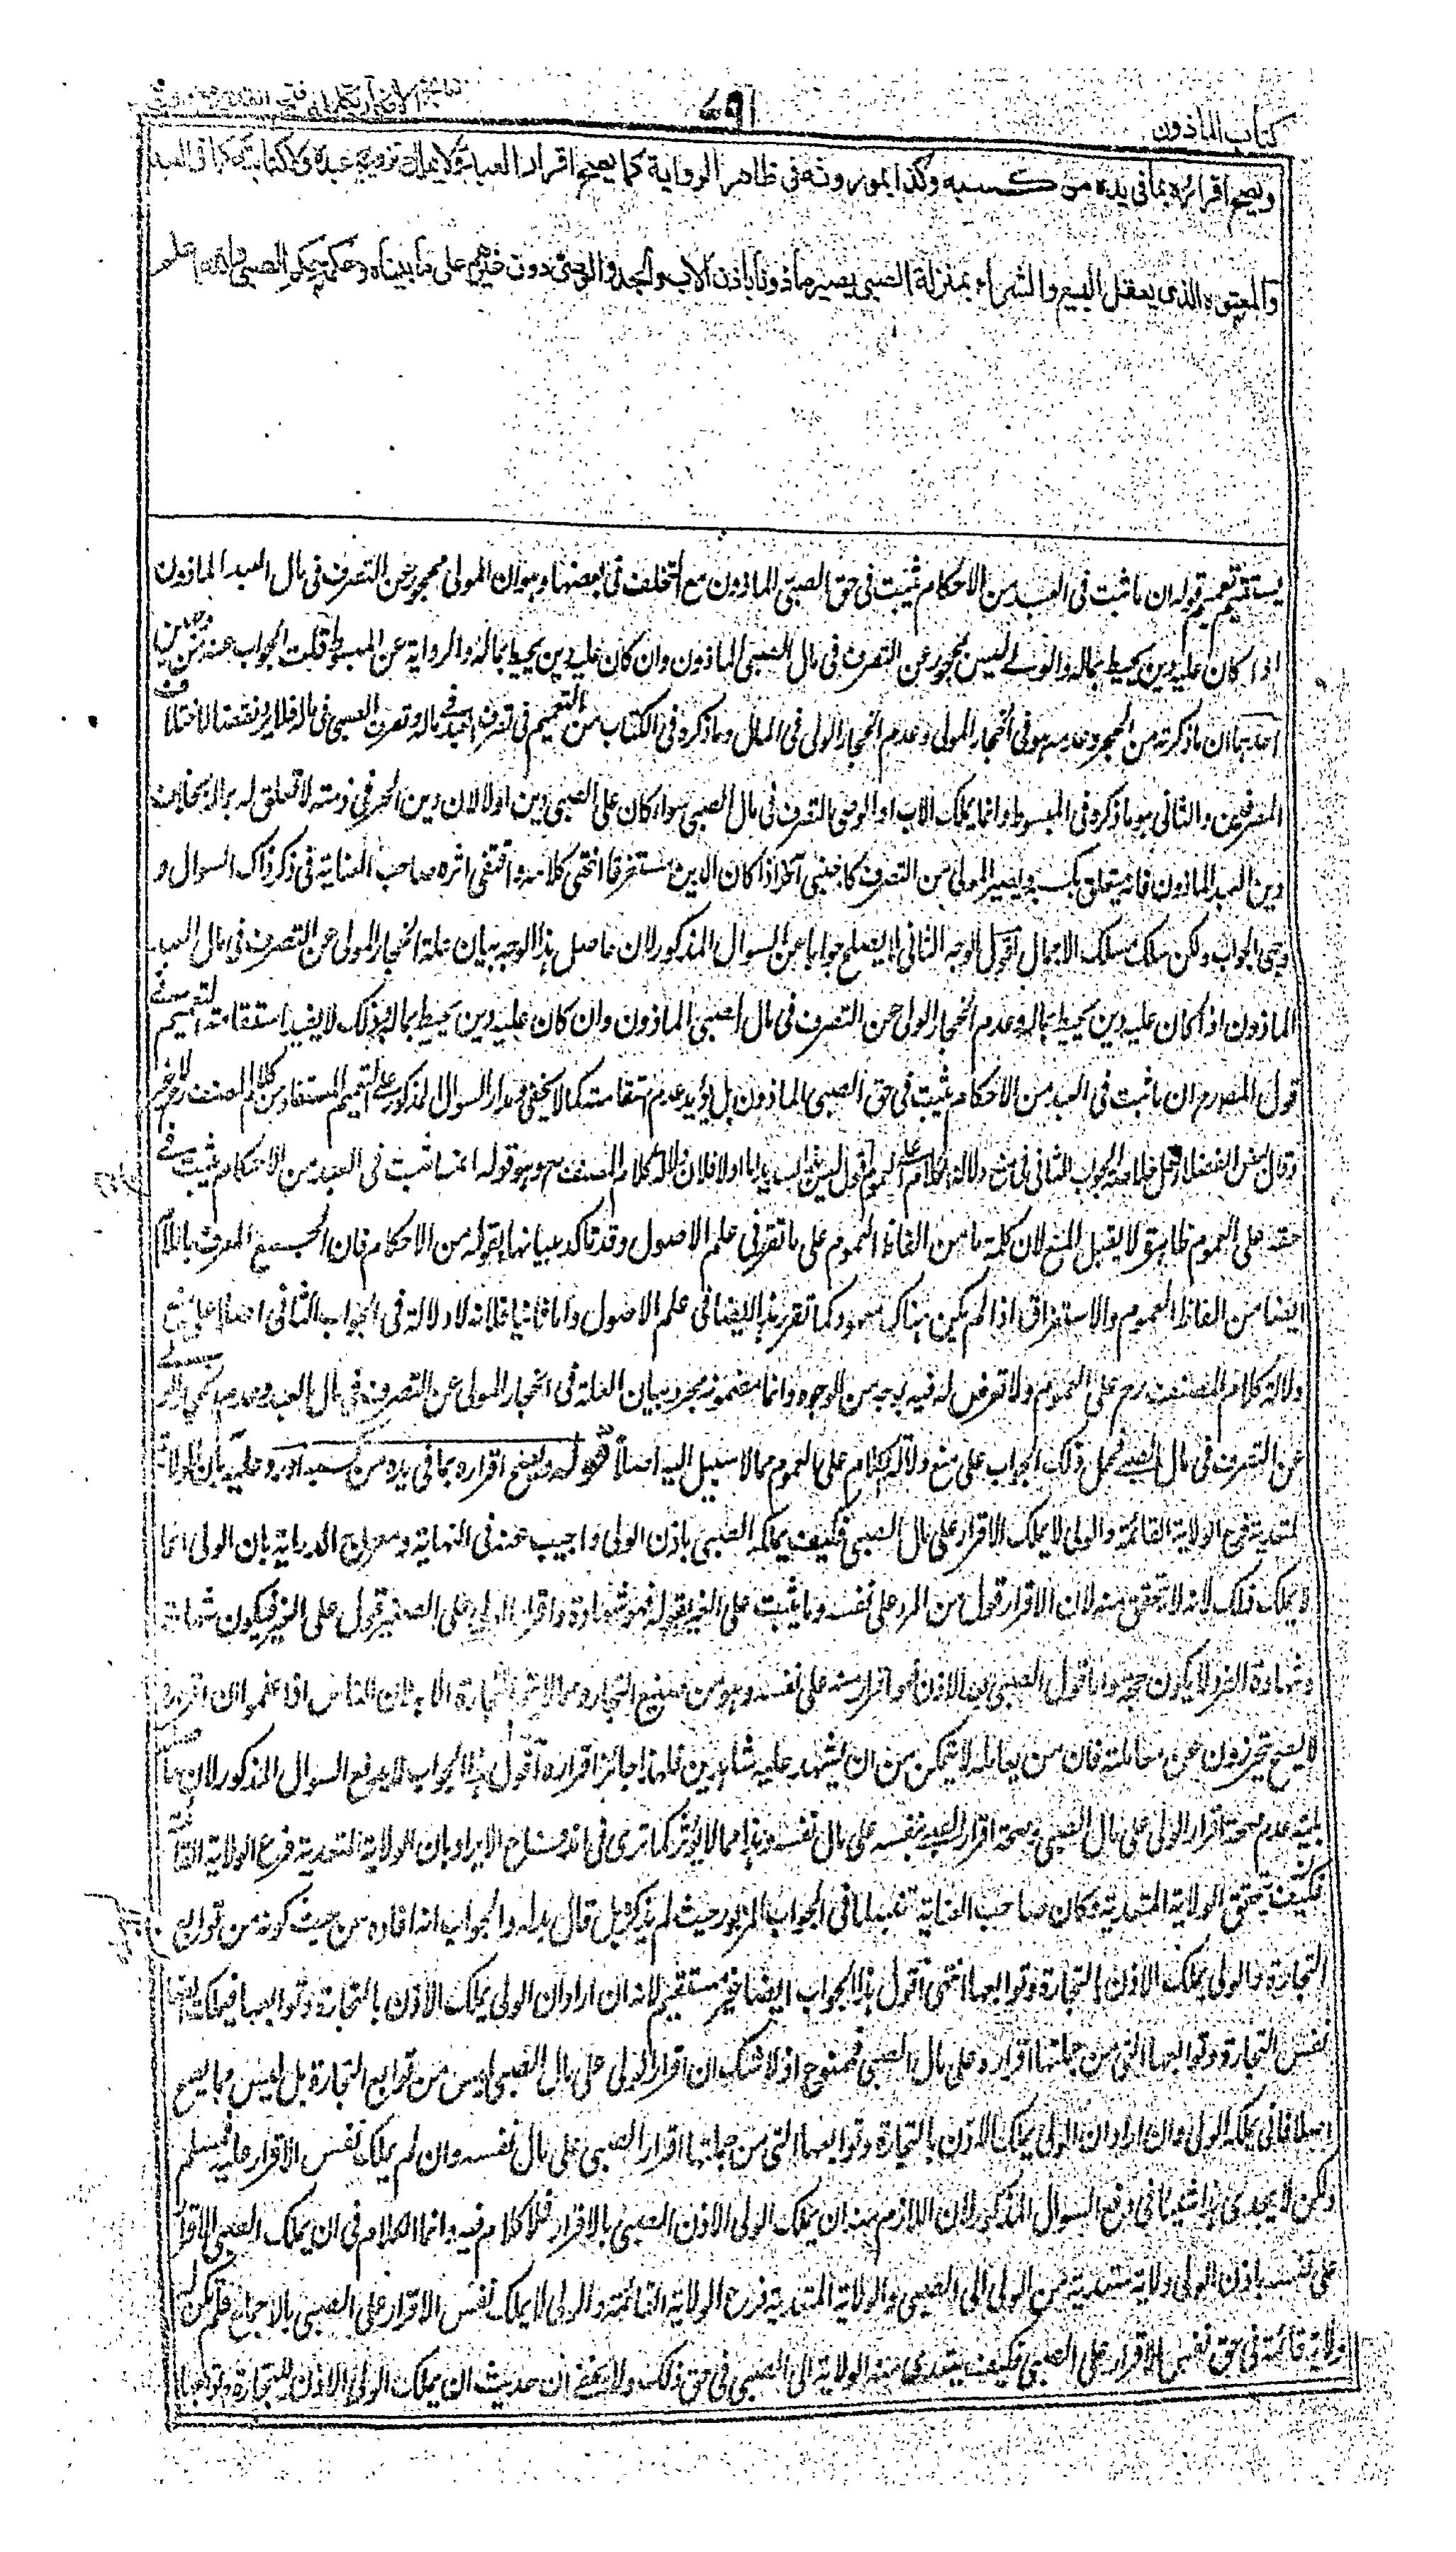 كتاب الماذون
نتائج الافكار تكملة فتح القدير
ويصح اقراره بما فى يده من كسبه وكذا بموروثه فى ظاهر الرواية كما يصح اقرار العبد ولا يملك تزويج عبده ولا كتابته كما فى العبد
والمعتوه الذى يعقل البيع والشراء بمنزلة الصبى يصير ماذونا باذن الاب والجد والوصى دون غيرهم على ما بيناه وحكمه حكم الصبى والله اعلم
يستقيم تعميم قوله ان ما ثبت فى العبد من الاحكام يثبت فى حق الصبى الماذون مع التخلف فى بعضها وهو ان المولى محجور عن التصرف فى مال العبد الماذون
اذا كان عليه دين يحيط بماله والولى ليس بمحجور عن التصرف فى مال الصبى الماذون وان كان عليه دين يحيط بماله والرواية عن المبسوط قلت الجواب عنه من وجهين
احدهما ان ما ذكرته من الحجر وعدمه هو فى انحجار المولى وعدم انحجار الولى فى المال وما ذكره فى الكتاب من التعميم فى تصرف العبد فى ماله وتصرف الصبى فى ماله فلا يرد نقضا لاختلاف
المصرفين والثانى هو ما ذكره فى المبسوط وانما يملك الاب او الوصى التصرف فى مال الصبى سواء كان على الصبى دين اولا لان دين الحر فى ذمته لا تعلق له بماله بخلاف
دين العبد الماذون فانه يتعلق بكسبه ويصير المولى من التصرف كاجنبى آخر اذا كان الدين مستغرقا انتهى كلامه واقتفى اثره صاحب العناية فى ذكر ذاك السوال و
وجهى الجواب ولكن سلك مسلك الاجمال اقول الوجه الثانى لا يصلح جوابا عن السوال المذكور لان حاصل هذا الوجه بيان علة انحجار المولى عن التصرف فى مال العبد
الماذون اذا كان عليه دين يحيط بماله وعدم انحجار الولى عن التصرف فى مال الصبى الماذون وان كان عليه دين يحيط بماله وذلك لا يفيد استقامة التعميم فى
قول المصنف رح ان ما ثبت فى العبد من الاحكام يثبت فى حق الصبى الماذون بل يؤيد عدم استقامته كما لا يخفى ومدار السوال المذكور على التعميم المستفاد من كلام المصنف رح
وقال بعض الفضلاء لعل خلاصة الجواب الثانى فى منع دلالة الكلام على العموم اقول ليس هذا بسديد اما اولا فلان دلالة كلام المصنف رح وهو قوله ان ما ثبت فى العبد من الاحكام يثبت فى
حقه على العموم ظاهرة لا يقبل المنع لان كلمة ما من الفاظ العموم على ما تقرر فى علم الاصول وقد تاكد بيانها بقوله من الاحكام فان الجمع المعرف باللام
ايضا من الفاظ العموم والاستغراق اذا لم يكن هناك معهود كما تقرر هذا ايضا فى علم الاصول واما ثانيا فلانه لا دلالة فى الجواب الثانى اصلا على منع
دلالة كلام المصنف رح على العموم ولا تعرض له فيه بوجه من الوجوه وانما مضمونه مجرد بيان العلة فى انحجار المولى عن التصرف فى مال العبد وعدم انحجار الولى
عن التصرف فى مال الصبى فحمل ذلك الجواب على منع دلالة الكلام على العموم مما لا سبيل اليه اصلا قوله ويصح اقراره بما فى يده من كسبه اورد عليه بان الولاية
المتعدية فرع الولاية القائمة والولى لا يملك الاقرار على مال الصبى فكيف يملكه الصبى باذن الولى واجيب عنه فى النهاية ومعراج الدراية بان الولى انما
لا يملك ذلك لانه لا تحقق منه لان الاقرار قول من المرء على نفسه وما يثبت على الغير بقوله فهو شهادة واقرار الولى على الصغير قول على الغير فيكون شهادة
وشهادة الفرد لا يكون حجة واما قول الصبى بعد الاذن فهو اقرار منه على نفسه وهو من صنيع التجار ومما لا تتم التجارة الا به لان الناس اذا علموا ان اقراره
لا يصح يتحرزون عن معاملته فان من يعامله لا يتمكن من ان يشهد عليه شاهدين فلهذا جاز اقراره اقول هذا الجواب لا يدفع السوال المذكور لان حاصله
بيان عدم صحة اقرار الولى على مال الصبى وصحة اقرار الصبى بنفسه على مال نفسه وهذا مما لا يؤثر كما ترى فى اندفاع الايراد بان الولاية المتعدية فرع الولاية القائمة
فكيف يتحقق الولاية المتعدية وكان صاحب العناية تنبه لما فى الجواب المزبور حيث لم يذكره بل قال بدله والجواب انه افاده من حيث كونه من توابع
التجارة والولى يملك الاذن بالتجارة وتوابعها انتهى اقول هذا الجواب ايضا غير مستقيم لانه ان اراد ان الولى يملك الاذن بالتجارة وتوابعها فيملك ايضا
نفس التجارة وتوابعها التى من جملتها اقراره على مال الصبى فممنوع اذ لا شك ان اقرار الولى على مال الصبى ليس من توابع التجارة بل ليس مما يصح
اصلا فانى يملكه الولى وان اراد ان الولى يملك الاذن بالتجارة وتوابعها التى من جملتها اقرار الصبى على مال نفسه وان لم يملك نفس الاقرار عليه فمسلم
ولكن لا يجدى هذا شيئا فى دفع السوال المذكور لان اللازم منه ان يملك الولى الاذن للصبى بالاقرار فلا كلام فيه وانما الكلام فى ان يملك الصبى الاقرار
على نفسه باذن الولى ولاية متعدية من الولى الى الصبى والولاية المتعدية فرع الولاية القائمة والولى لا يملك نفس الاقرار على الصبى بالاجماع فلم يكن له
ولاية قائمة فى حق نفس الاقرار على الصبى فكيف يتعدى منه الولاية الى الصبى فى حق ذلك ولا يخفى ان حديث ان يملك الولى الاذن للتجارة وتوابعها